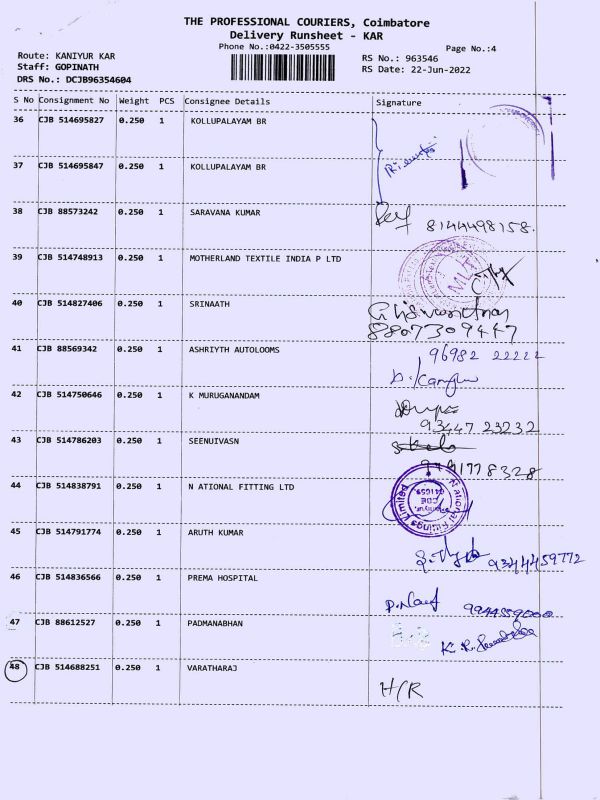 THE PROFESSIONAL COURIERS, Coimbatore
Delivery Runsheet - KAR
Phone No.:0422-3505555
Page No.:4
Route: KANIYUR KAR
RS No.: 963546
Staff: GOPINATH
RS Date: 22-Jun-2022
DRS No.: DCJB96354604
S No Consignment No Weight PCS Consignee Details Signature
36 CJB 514695827 0.250 1 KOLLUPALAYAM BR
37 CJB 514695847 0.250 1 KOLLUPALAYAM BR
38 CJB 88573242 0.250 1 SARAVANA KUMAR
8144498158.
39 CJB 514748913 0.250 1 MOTHERLAND TEXTILE INDIA P LTD
40 CJB 514827406 0.250 1 SRINAATH
8807309447
41 CJB 88569342 0.250 1 ASHRIYTH AUTOLOOMS
96982 22222
42 CJB 514750646 0.250 1 K MURUGANANDAM
93447 23232
43 CJB 514786203 0.250 1 SEENUIVASN
44 CJB 514838791 0.250 1 N ATIONAL FITTING LTD
National Fittings Limited
45 CJB 514791774 0.250 1 ARUTH KUMAR
9344459772
46 CJB 514836566 0.250 1 PREMA HOSPITAL
47 CJB 88612527 0.250 1 PADMANABHAN
48 CJB 514688251 0.250 1 VARATHARAJ
H/R